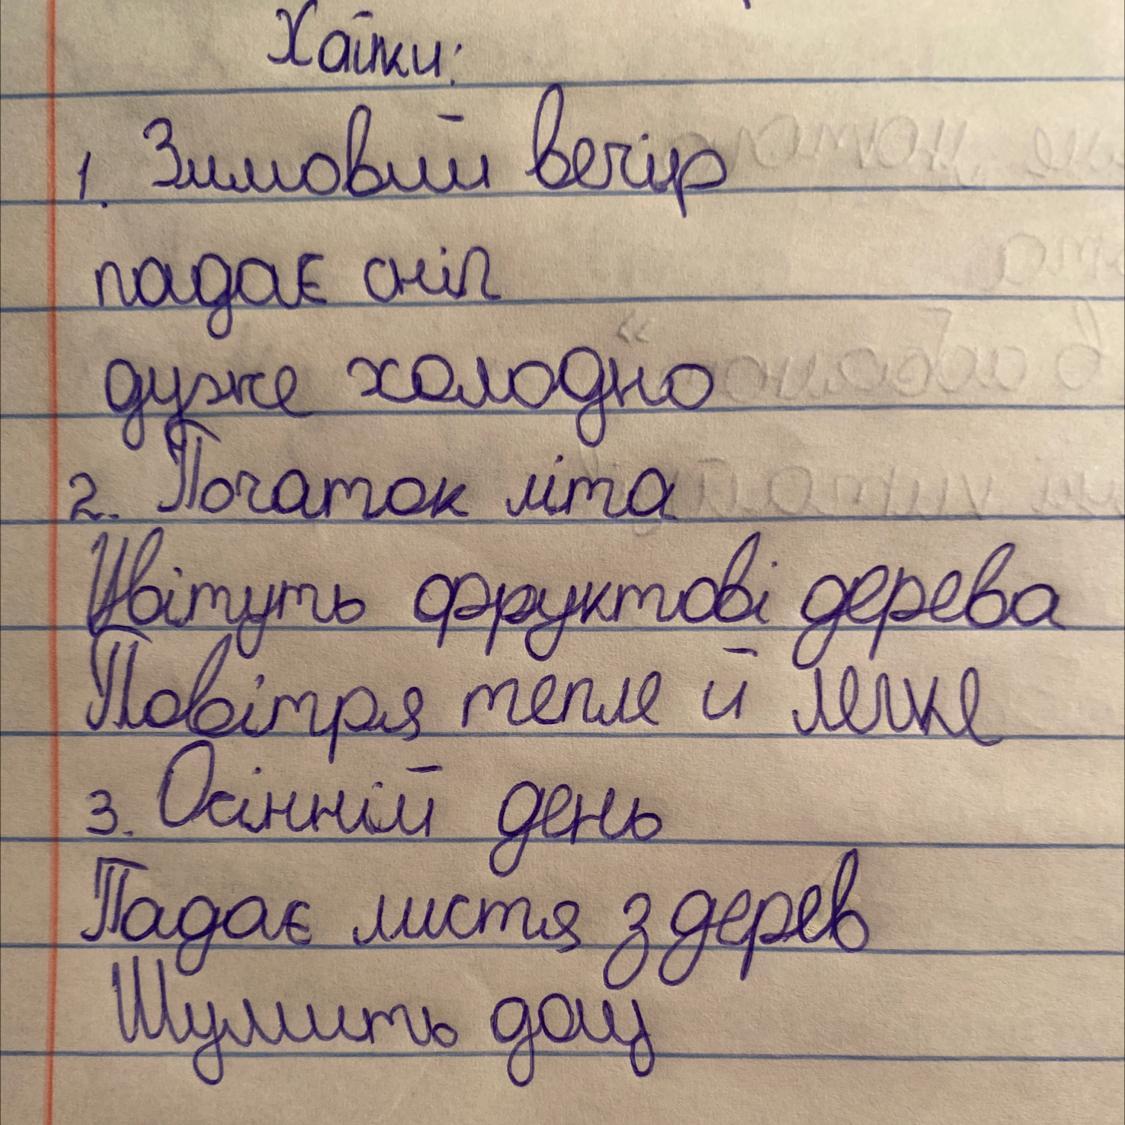 Хайки:
1. Зимовий вечір
падає сніг
дуже холодно
2. Початок літа
Цвітуть фруктові дерева
Повітря тепле й легке
3. Осінній день
Падає листя з дерев
Шумить дощ